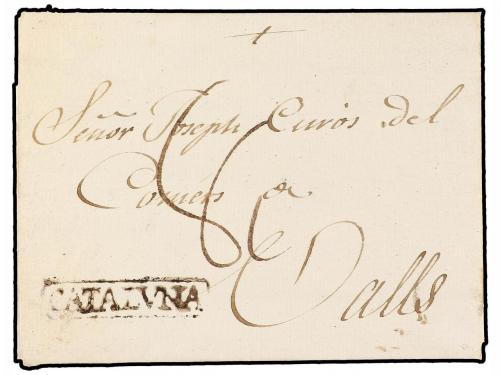 +
Señor Joseph Curós del
Comers a
Valls
CATALVNA